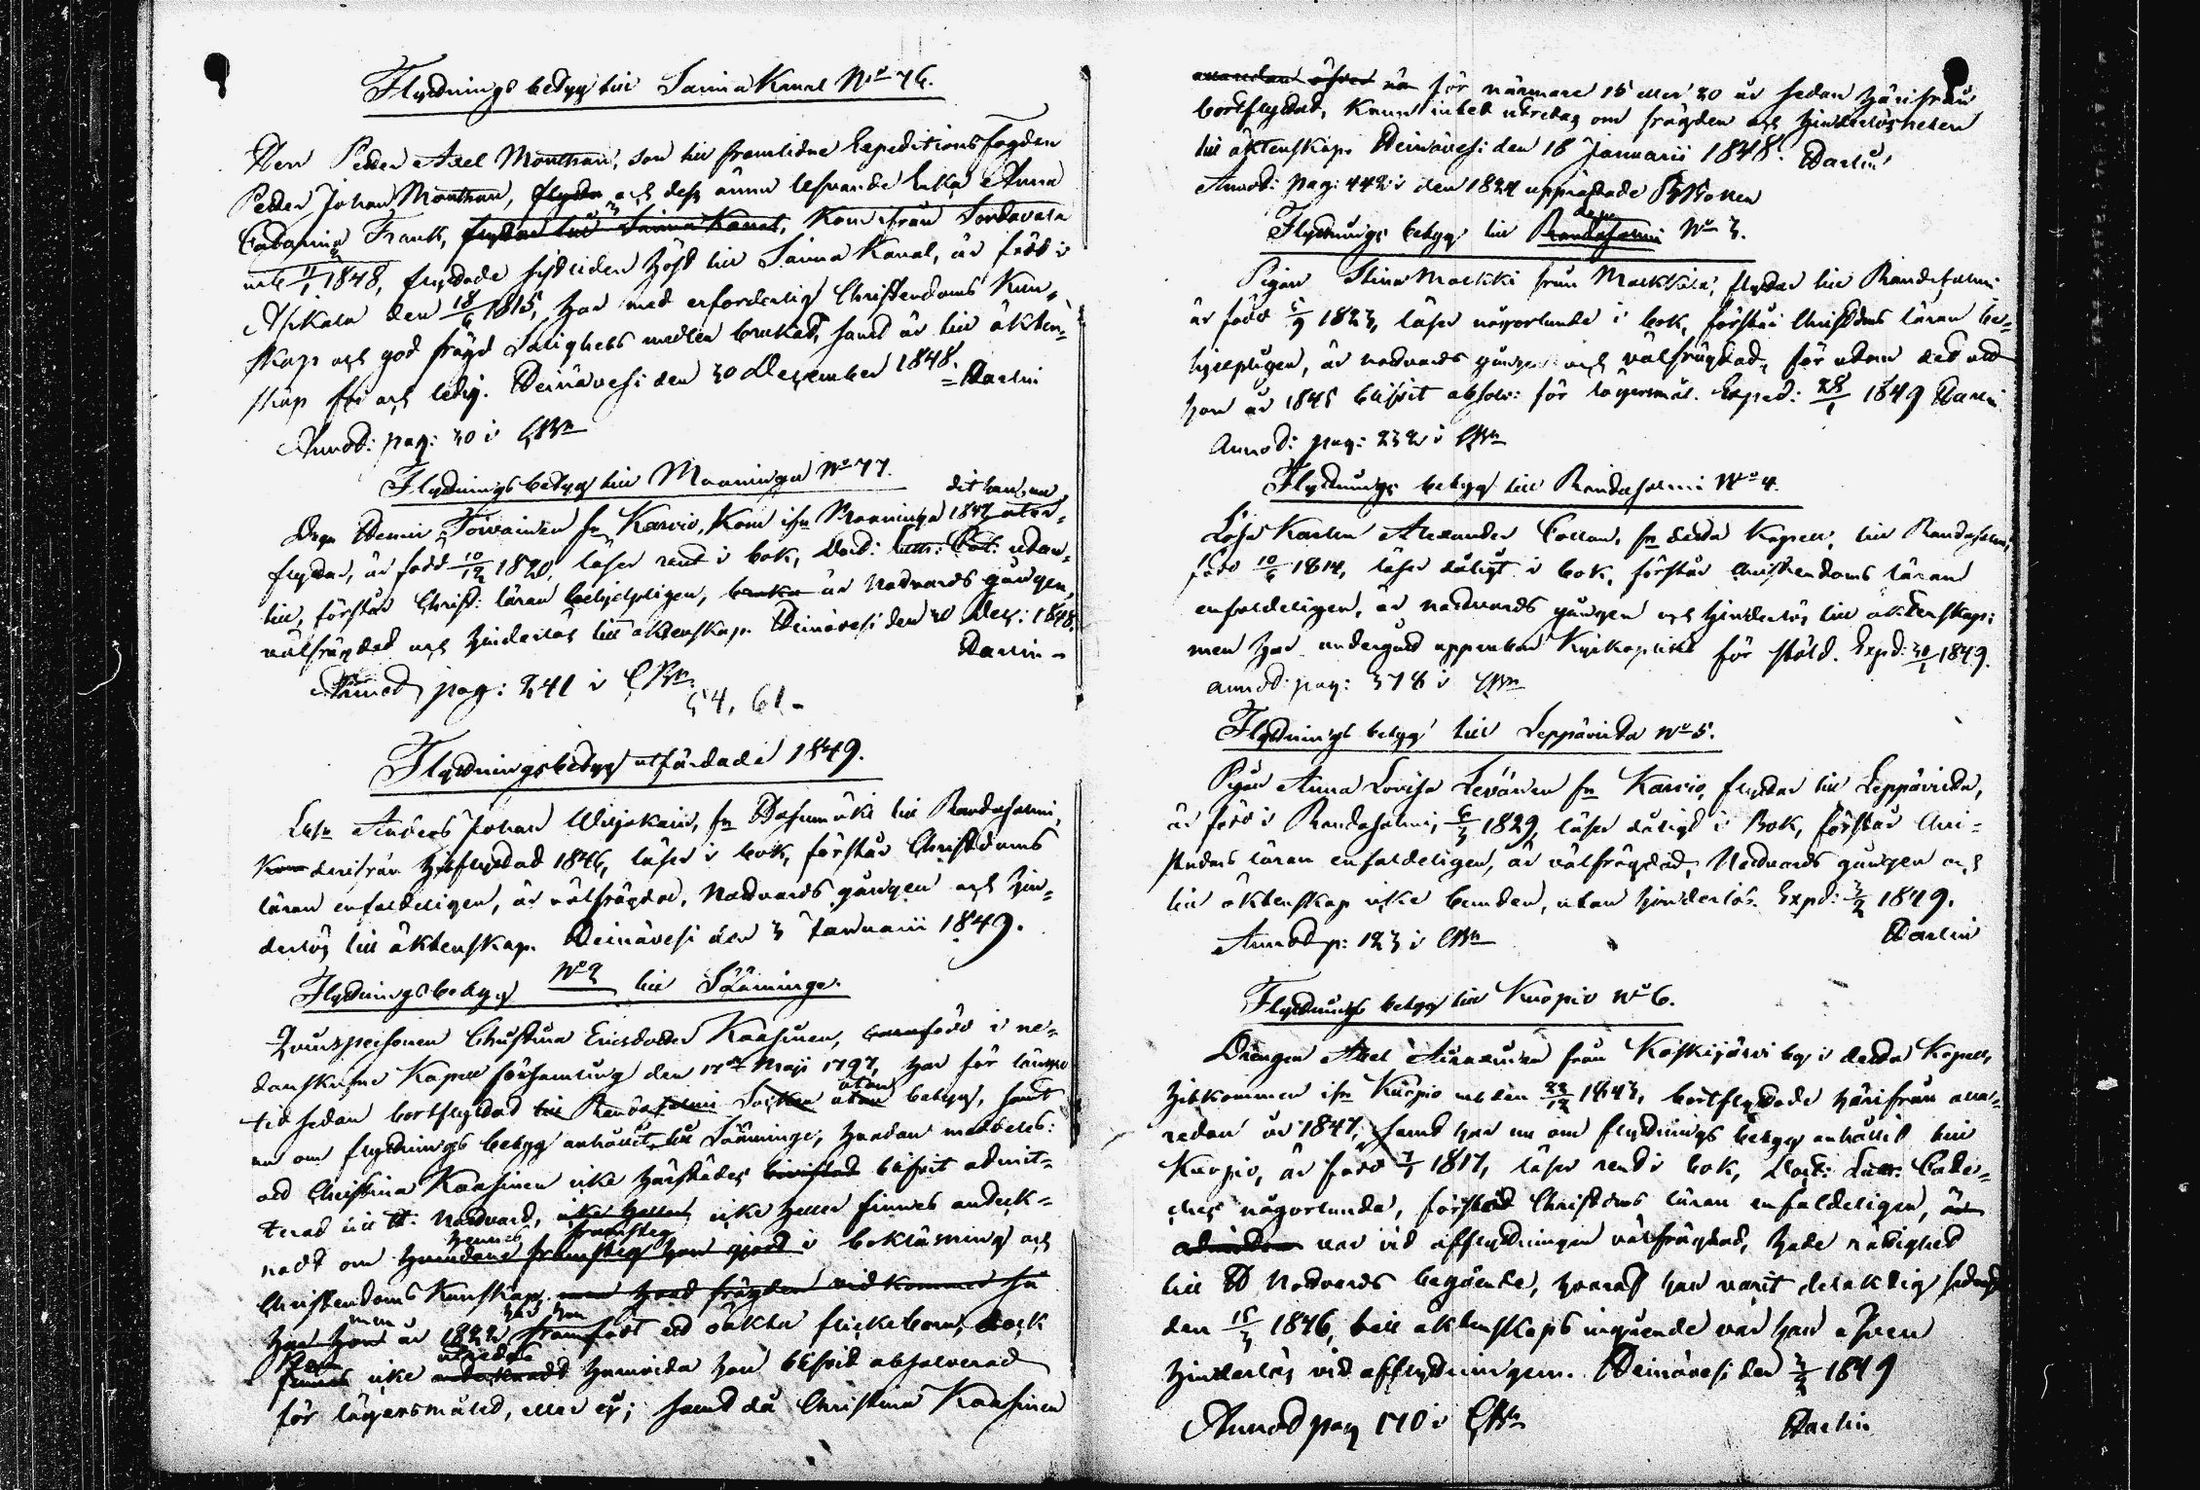 Flyttnings betyg till Saima Kanal No 76.
Herr Petter Axel Monthan, son till framlidne Expeditions Fogden
Petter Johan Monthan, flyttar och dess ännu lefvande Enka Anna
Catharina Frank, flyttar till Saima Kanal, kom ifrån Sordavala
1848, flyttade sistliden höst till Saima Kanal, är född i
Asikala den 18/6 1815, har med erforderlig Christendoms Kun-
skap och god frägd Salighets medlen brukat, samt är till äkten-
skap fri och ledig. Heinävesi den 30 December 1848.
Darlin
Annot: pag: 30 i CBn
Flyttningsbetyg till Maaninga No 77.
Drgn Henric Toivainen fn Karvio, kom ifn Maaninga 1847
flyttar, är född 10/12 1820, läser rent i bok,
till, förstår Christ: läran behjelpligen, är Nattvards gången,
välfrägdad och hinderlös till äktenskap. Heinävesi den 30 Dec: 1848.
Darlin
Annot pag: 241 i CBn.
54, 61
Flyttningsbetyg utfärdade 1849.
Anders Johan Wirjakain, fn Pasumäki till Randasalmi,
Kom derifrån hitflyttad 1846, läser i bok, förstår Christdoms
läran enfaldeligen, är välfrägdad, Nattvards gången och hin-
derlös till äktenskap. Heinävesi den 3 Januarii 1849.
Flyttningsbetyg No 2 till Sääminge.
Qvinspersonen Christina Ericsdotter Kaasinen, född i ne-
danskrifne Kapell församling den 17de Maji 1797, har för längre
tid sedan bortflyttat till Randasalmi Socken utan betyg, samt
nu om flyttnings betyg anhållit till Sääminge, hvarom meddelas:
att Christina Kaasinen icke härstädes blifvit admit-
terad till H: Nattvard, icke heller icke heller finnes anteck-
nadt om hennes framsteg i bokläsning och
Christendoms Kunskap,
men år 1822 här hon framfödt ett oäkta flickebarn, dock
kan icke utredas huruvida hon blifvit absolverad
för lägersmålet, eller ej; samt då Christina Kaasinen
för närmare 15 eller 20 år sedan härifrån
bortflyttat, kunnat intet utredas om frägden och hinderlösheten
till äktenskap. Heinävesi den 18 Januarii 1848. Darlin
Annot: pag: 442 i den 1824 upprättade
Flyttnings betyg till Randasalmi No 3.
Pigan Stina Matikki från flyttar till Randasalmi
är född 5/9 1823, läser någorlunda i bok, förstår Christdoms läran be-
hjelpligen, är nattvards gången och välfrägdad, för utom det att
hon år 1845 blifvit absolv: för lägersmål. Exped: 28/1 1849 Darlin
Annot: pag: 232 i CBn
Flyttnings betyg till Randasalmi No 4.
Karlen Alexander Collan, fn detta Kapell, till Randasalmi,
född 10/6 1814, läser dåligt i bok, förstår Christendoms läran
enfaldeligen, är nattvards gången och hinderlös till äktenskap;
men har undergått uppenbar Kyrkoplikt för stöld. Expd: 30/1 1849.
Annot: pag: 378 i CBn
Flyttnings betyg till Leppävirta No 5.
Pigan Anna Lovisa Levänen fn Karvio, flyttar till Leppävirta,
är född i Randasalmi, 6/3 1829, läser dåligt i Bok, förstår Chri-
stendoms läran enfaldeligen, är välfrägdad, Nattvards gången och
till äktenskap icke bunden, utan hinderlös. Expd: 3/2 1849.
Annot p: 123 i CBn Darlin
Flyttnings betyg till Kuopio No 6.
Drängen Axel från Koskijärvi by i detta Kapell,
hitkommen ifn Kuopio 1843, bortflyttade härifrån alla-
redan år 1847, samt har nu om flyttnings betyg anhållit till
Kuopio, är född 1817, läser rent i bok, Doct: Luth: Cate-
ches någorlunda, förstod Christdoms läran enfaldeligen, är
var vid afflyttningen välfrägdad, hade rättighet
till H Nattvards begående, hvaraf han varit delaktig sednast
den 15/3 1846, till äktenskaps ingående var han äfven
hinderlös vid afflyttningen. Heinävesi den 3/2 1849
Annot pag 170 i CBn Darlin